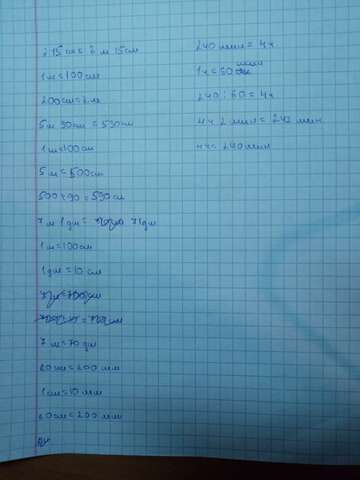 215см = 2 м 15см
1м=100см
200см=2м
5м 90см = 590см
1м=100см
5м=500см
500+90=590см
7м 1дм= 71дм
1м=100см
1дм=10см
7м=70дм
20см=200мм
1см=10мм
20см=200мм
240мин=4ч
1ч=60мин
240:60=4ч
4ч 2мин=242мин
4ч=240мин